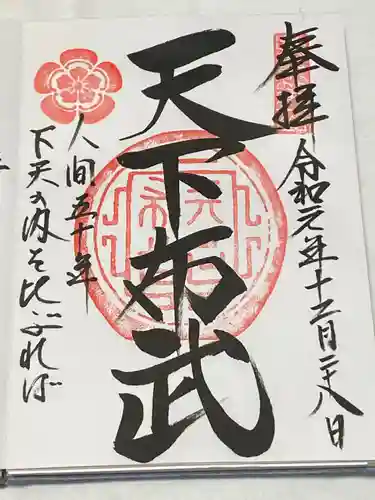 奉拝
令和元年十二月二十八日
天下布武
人間五十年
下天の内をくらぶれば